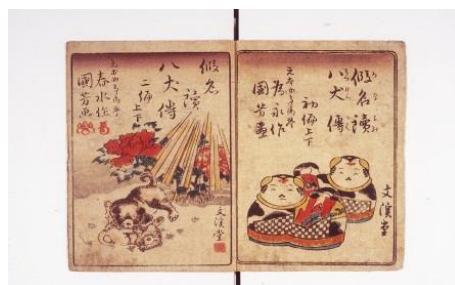 假名讀
八犬傳
初編上下
為永作
國芳画
文溪堂
假名讀
八犬傳
二編上下
春水作
國芳画
文溪堂